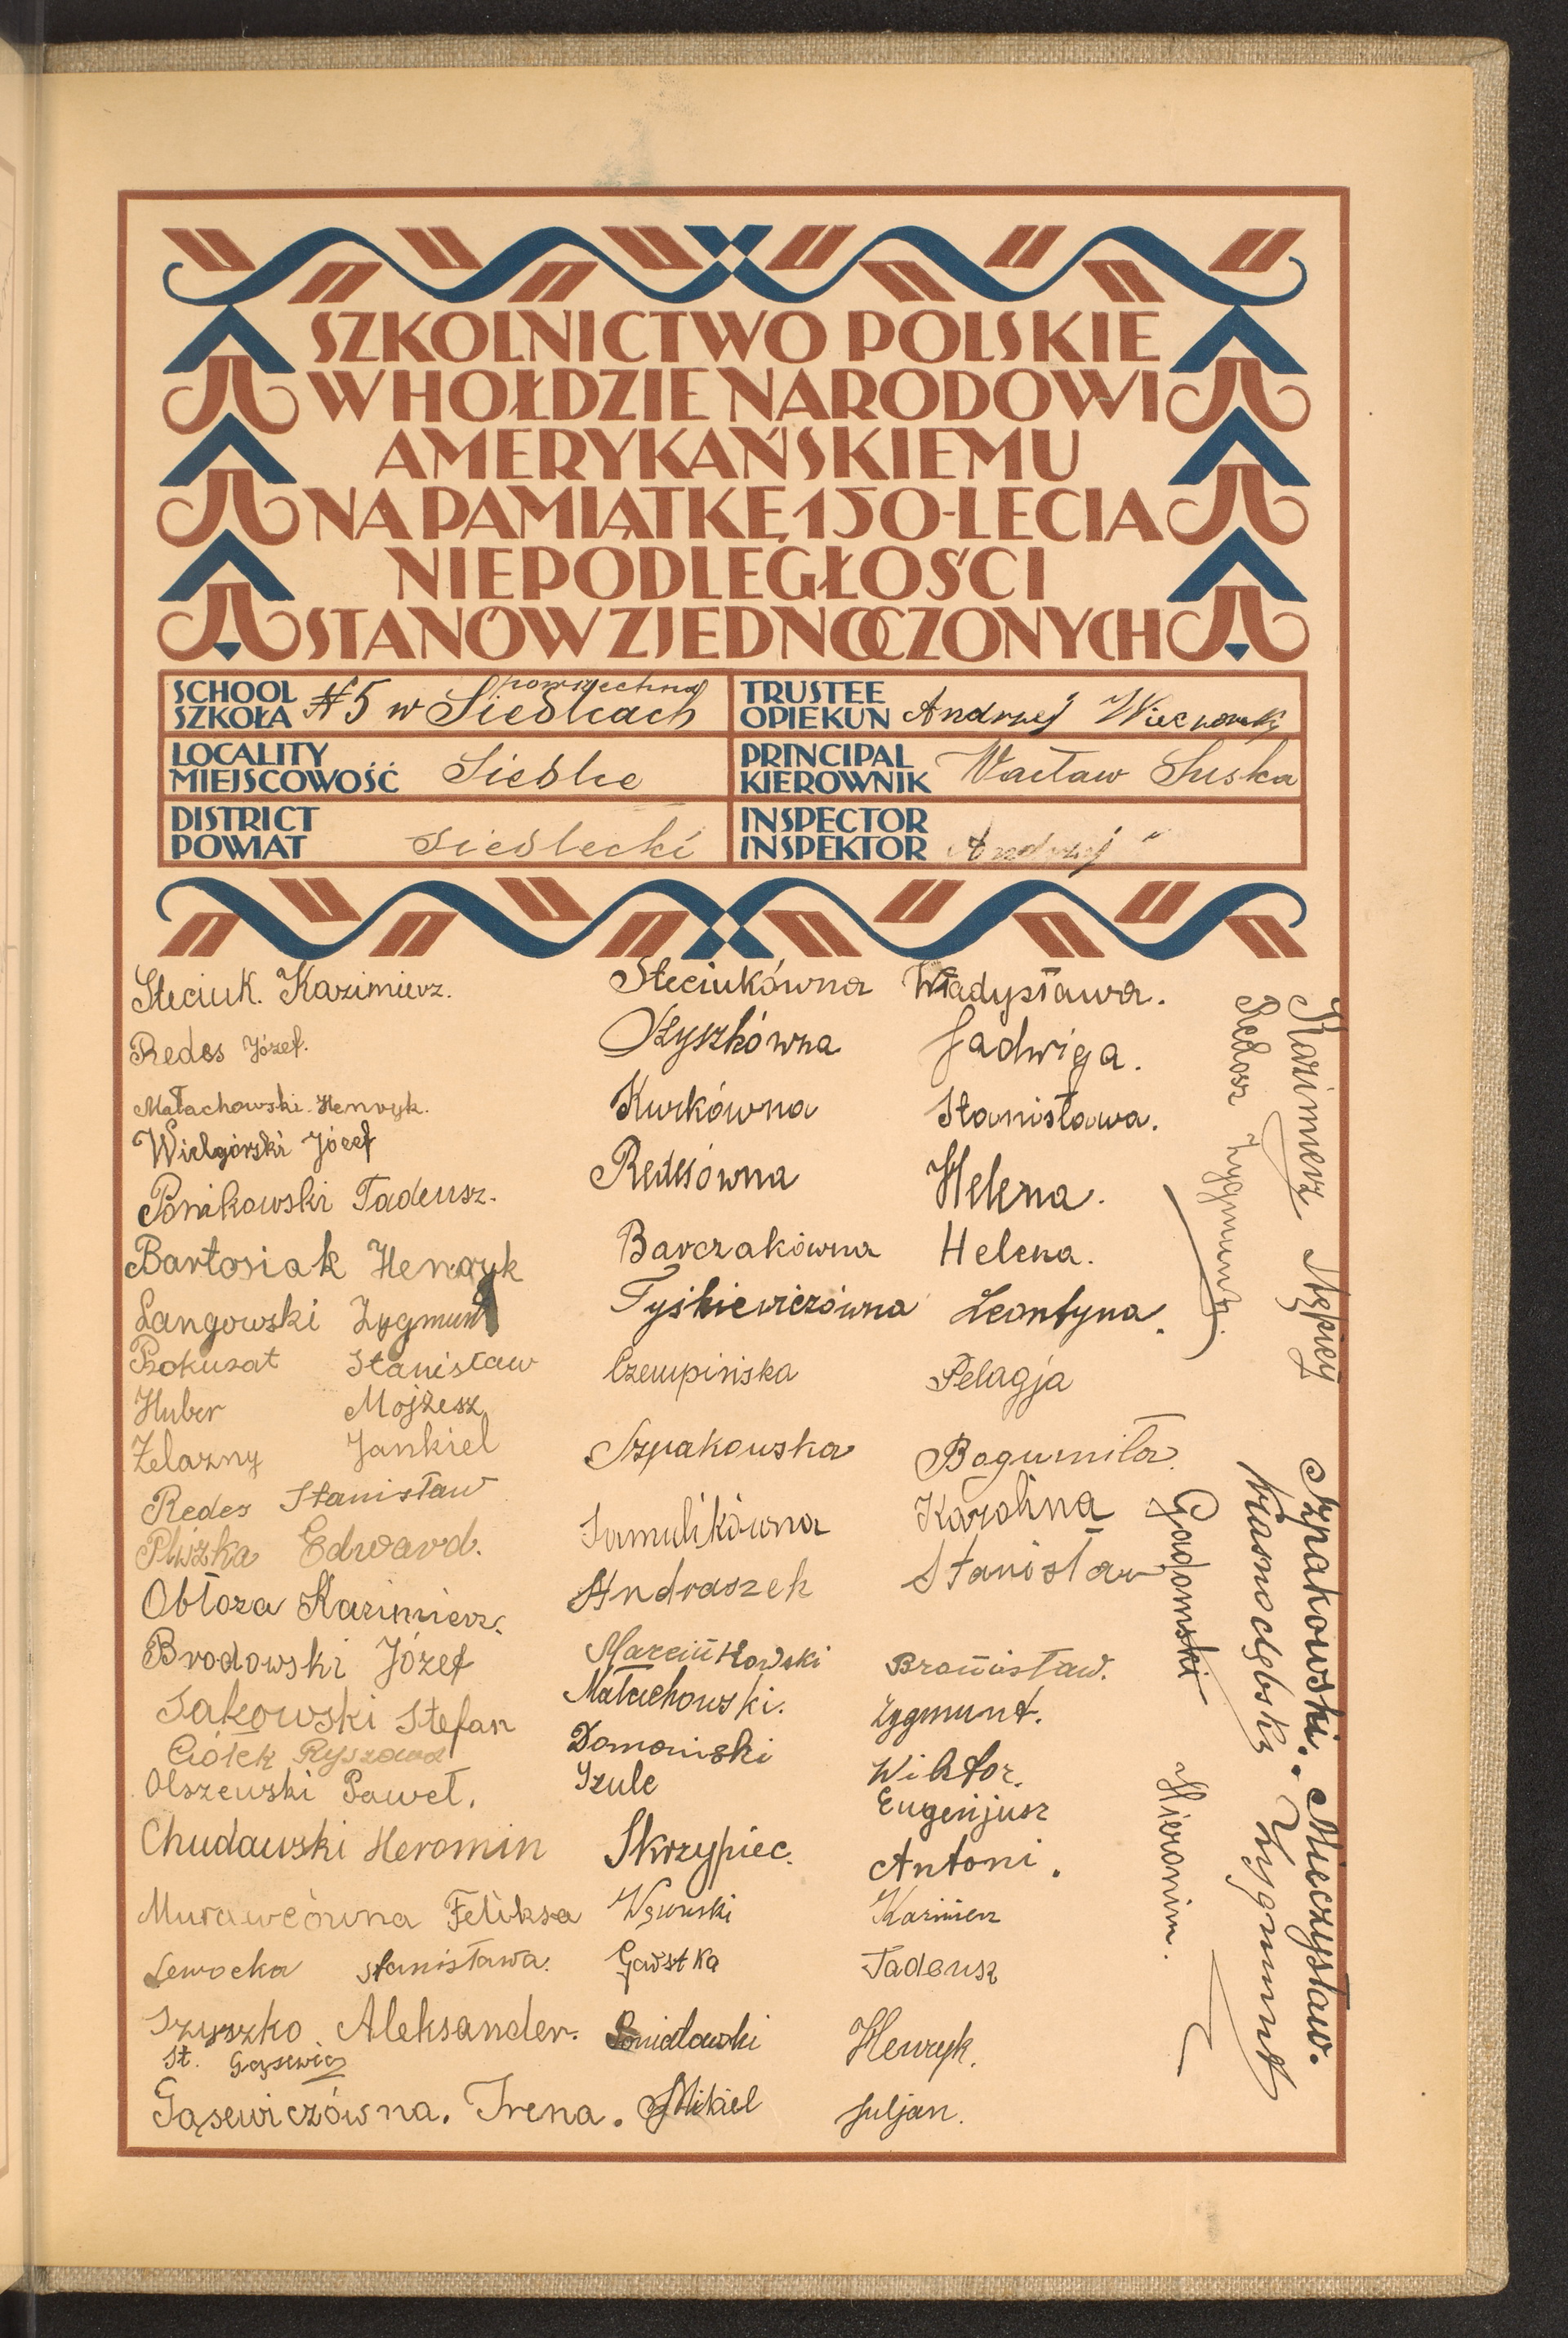 SZKOLNICTWO POLSKIE
W HOŁDZIE NARODOWI
AMERYKAŃSKIEMU
NA PAMIĄTKĘ 150-LECIA
NIEPODLEGŁOŚCI
STANÓW ZJEDNOCZONYCH
SCHOOL
SZKOŁA
powszechna
№ 5 w Siedlcach
TRUSTEE
OPIEKUN
Andrzej
LOCALITY
MIEJSCOWOŚĆ
Siedlce
PRINCIPAL
KIEROWNIK
Wacław Suska
DISTRICT
POWIAT
Siedlecki
INSPECTOR
INSPEKTOR
Andrzej
Steciuk. Kazimierz.
Redes Józef.
Małachowski. Henryk.
Wielgórski Józef
Ponikowski Tadeusz.
Bartosiak Henryk
Langowski Zygmunt
Prokurat Stanisław
Huber Mojżesz
Żelazny Jankiel
Redes Stanisław
Pliszka Edward.
Obłoza Kazimierz.
Brodowski Józef
Sakowski Stefan
Ciółek Ryszard
Olszewski Paweł.
Chudawski Heromin
Murawcówna Feliksa
Lewocka Stanisława.
Szyszko Aleksander.
St. Gąsewicz
Gąsewiczówna. Irena.
Steciukówna Władysława.
Ożyszkówna Jadwiga.
Kurkówna Stanisława.
Redesówna Helena.
Barczakówna Helena.
Tyśkiewiczówna Leontyna.
Czempińska Pelagja
Szpakowska Bogumiła.
Samulikówna Karolina
Andraszek Stanisław
Marcinkowski Bronisław.
Małachowski. Zygmunt.
Domański Wiktor.
Szulc Eugenjusz
Skrzypiec. Antoni.
Wąsowski Kazimierz
Gawstka Tadeusz
Poniatowski Henryk.
Mikiel Juljan.
Kazimierz Stępień
Redosz Zygmunt.
Szpakowski. Mieczysław.
Krasnodębski. Zygmunt
Gadomski Hieronim.